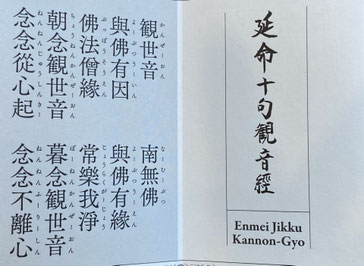 延命十句観音經
Enmei Jikku
Kannon-Gyo
かんぜーおん なーむーぶつ
観世音 南無佛
よーぶつうーいん よーぶつうーえん
與佛有因 與佛有緣
ぶっぽうそうえん じょうらくがーじょう
佛法僧緣 常樂我淨
ちょうねんかんぜーおん ぼーねんかんぜーおん
朝念観世音 暮念観世音
ねんねんじゅうしんきー ねんねんふーりーしん
念念從心起 念念不離心